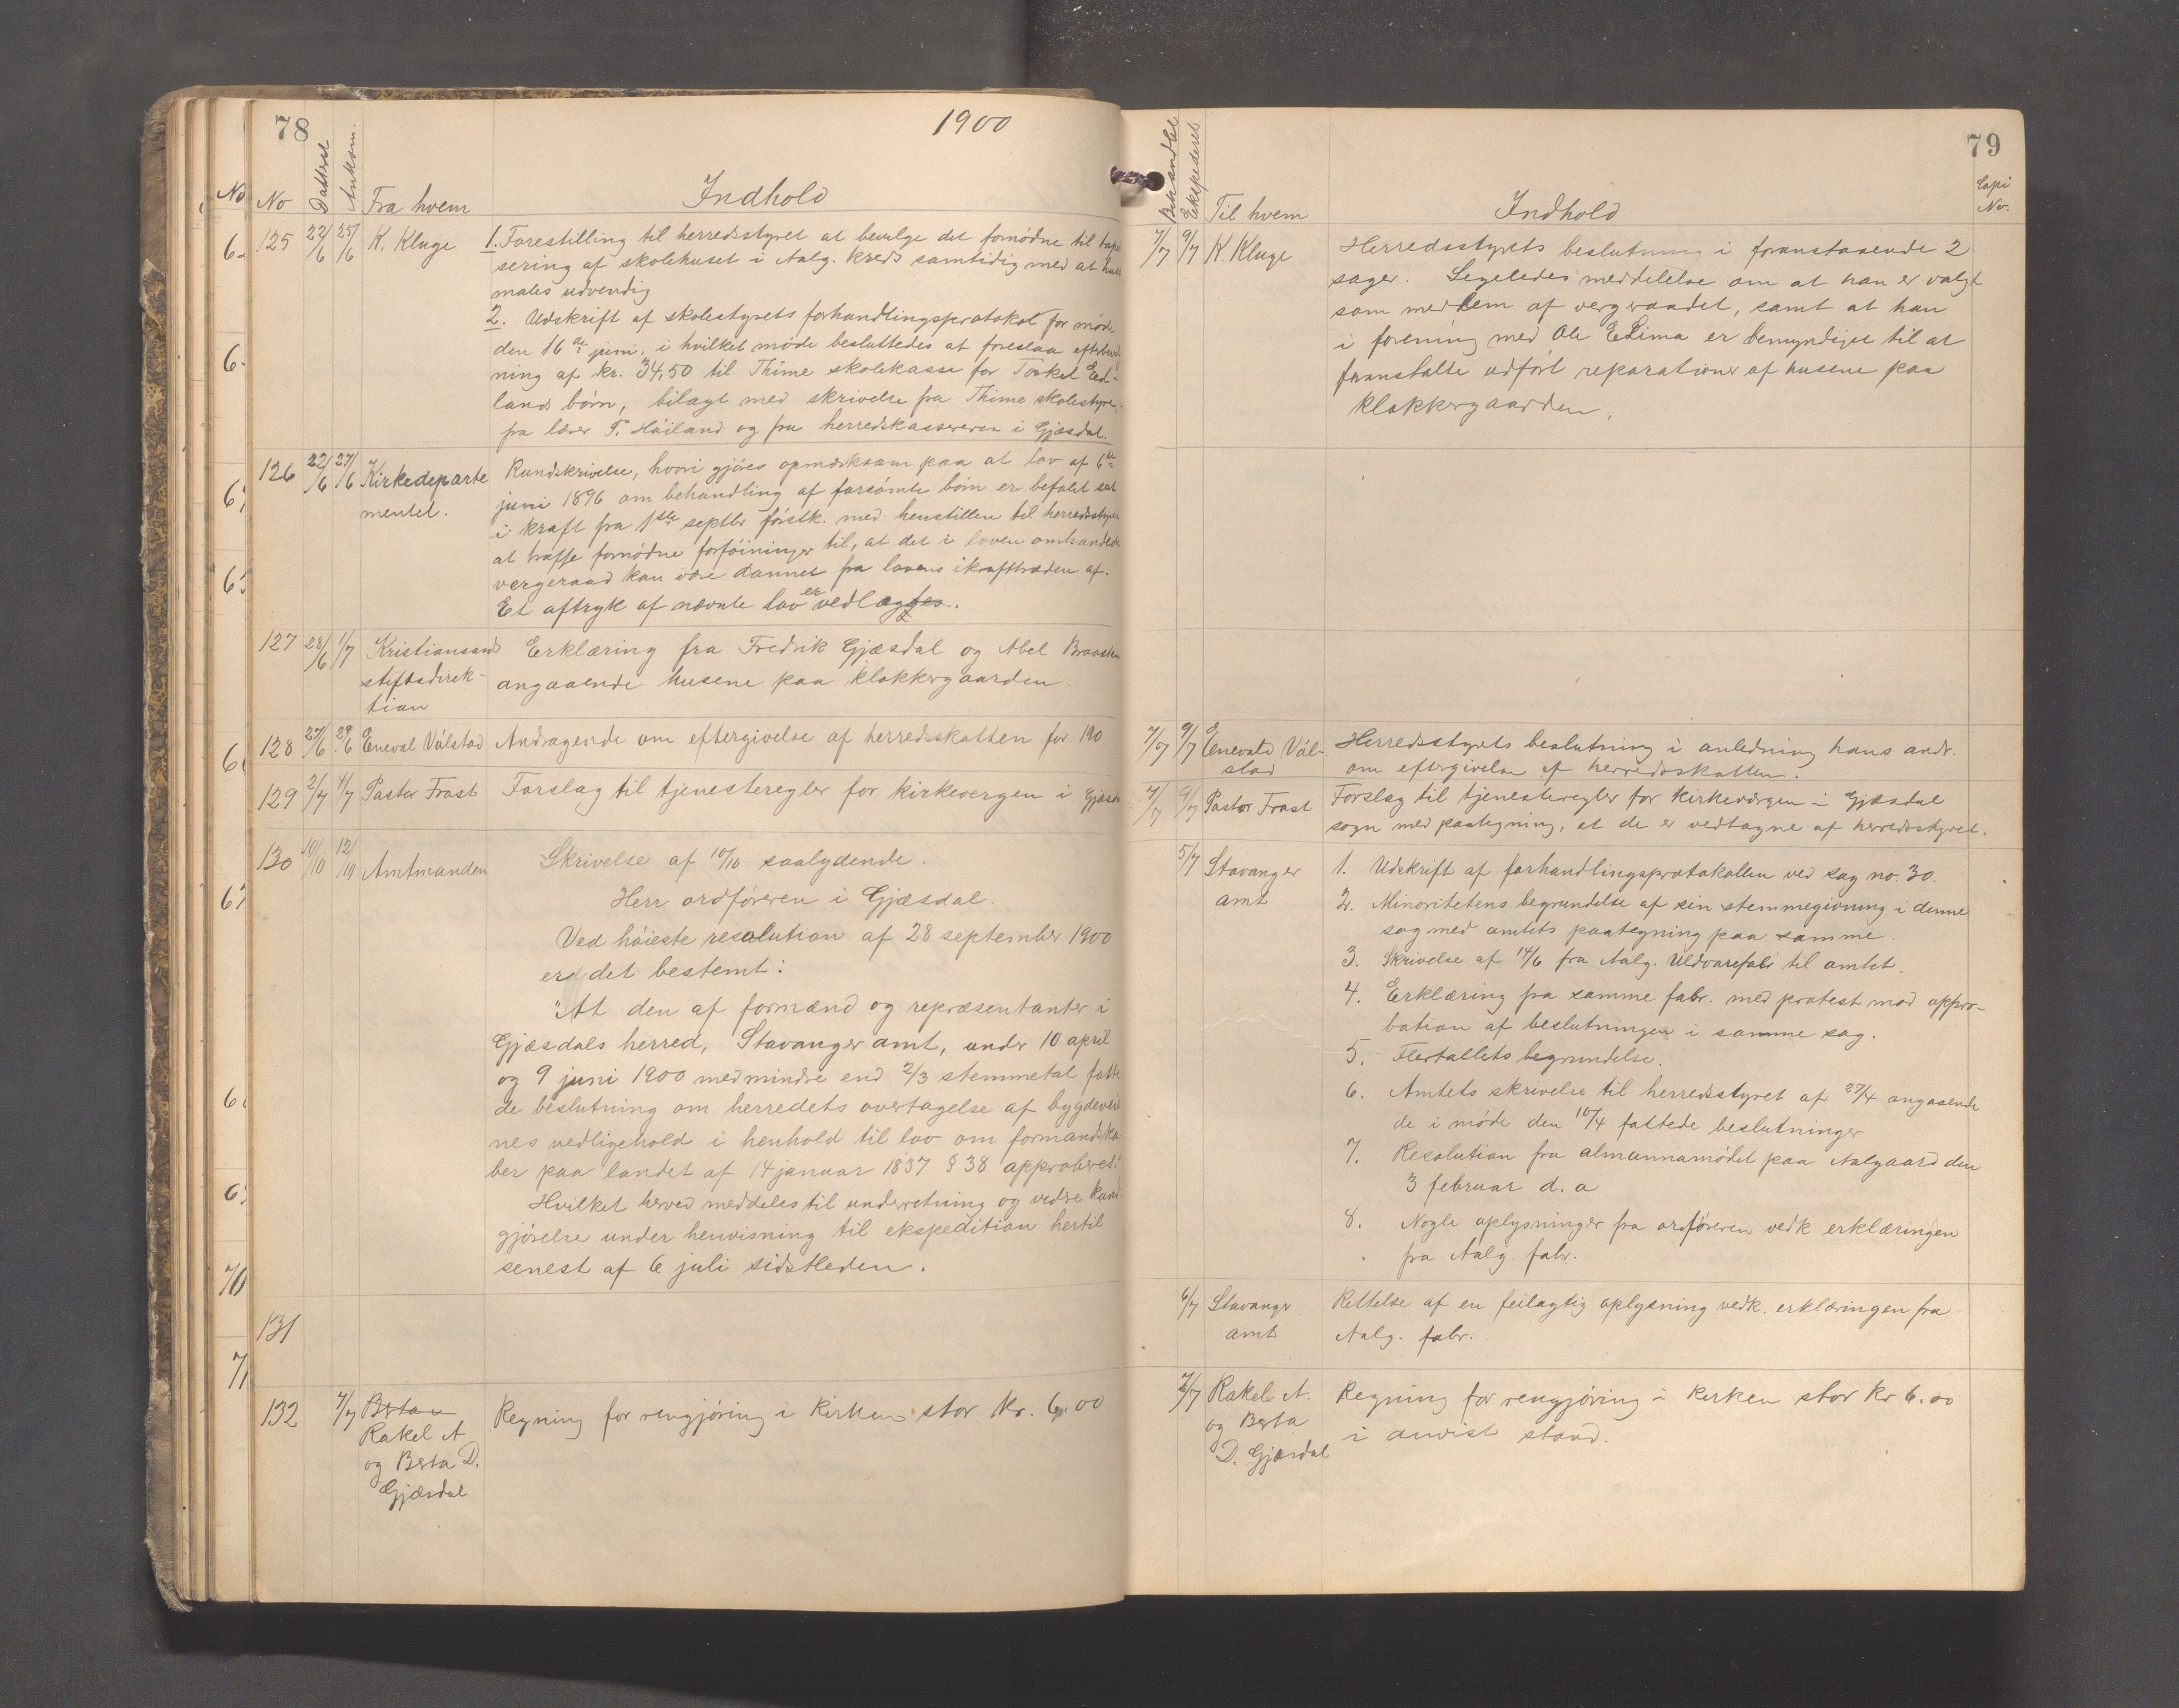 78
1900
No
Datteret
Ankom.
Fra hvem
Indhold
125 22/6 25/6 K. Kluge
1. Forestilling til herredsstyret at bevilge det fornødne til tape
sering af skolehuset i Aalg. kreds samtidig med at huset
males udvendig
2. Udskrift af skolestyrets forhandlingsprotokol for møde
den 16de juni, i hvilket møde besluttedes at foreslaa
ning af kr. 34,50 til Thime skolekasse for Torkel Ed-
lands børn, bilagt med skrivelse fra Thime skolestyre,
fra lærer T. Høiland og fra herredskassereren i Gjæsdal.
126 22/6 27/6 Kirkedeparte
mentet.
Rundskrivelse, hvori gjøres opmerksom paa at lov af 6te
juni 1896 om behandling af forsømte børn er befalet sat
i kraft fra 1ste septbr førstk. med henstillen til herredsstyret
at træffe fornødne forføininger til, at det i loven omhandlede
vergeraad kan være dannet fra lovens ikrafttræden af.
Et aftryk af nævnte lov er vedlagt.
127 28/6 1/7 Kristiansands
stiftsdirek-
tion
Erklæring fra Fredrik Gjæsdal og Abel Braasten
angaaende husene paa klokkergaarden.
128 27/6 29/6 Eneval Válstad
Andragende om eftergivelse af herredsskatten for 190
129 2/7 4/7 Pastor Frost
Forslag til tjenesteregler for kirkevergen i Gjæsda
130 10/10 12/10 Amtmanden
Skrivelse af 10/10 saalydende.
Herr ordføreren i Gjæsdal.
Ved høieste resolution af 28 september 1900
er det bestemt:
"At den af formænd og repræsentanter i
Gjæsdals herred, Stavanger amt, under 10 april
og 9 juni 1900 med mindre end 2/3 stemmetal fatte
de beslutning om herredets overtagelse af bygdevei
nes vedligehold i henhold til lov om formandska
ber paa landet af 14 januar 1837 § 38 approberes."
Hvilket herved meddeles til underretning og videre kund
gjørelse under henvisning til ekspedition hertil
senest af 6 juli sidstleden.
131
132 7/7 Berta
Rakel A
og Berta D.
Gjæsdal
Regning for rengjøring i kirken stor kr. 6.00
79
Behandlet
Ekspederet
Til hvem
Indhold
Copi
No.
7/7 9/7 K. Kluge
Herredsstyrets beslutning i foranstaaende 2
sager. Ligeledes meddelelse om at han er valgt
som medlem af vergeraadet, samt at han
i forening med Ole Edima er bemyndiget til at
foranstalte udført reparationer af husene paa
klokkergaarden.
7/7 9/7 Enevald Vál-
stad
Herredsstyrets beslutning i anledning hans andr.
om eftergivelse af herredsskatten.
7/7 9/7 Pastor Frost
Forslag til tjenesteregler for kirkevergen i Gjæsdal
sogn med paategning, at de er vedtagne af herredsstyret.
5/7 Stavanger
amt
1. Udskrift af forhandlingsprotokollen ved sag no. 30.
2. Minoritetens begrundelse af sin stemmegivning i denne
sag med amtets paategning paa samme.
3. Skrivelse af 14/6 fra Aalg. Uldvarefabr til amtet.
4. Erklæring fra samme fabr. med protest mod appro-
bation af beslutningen i samme sag.
5. Flertallets begrundelse.
6. Amtets skrivelse til herredsstyret af 27/4 angaaende
de i møde den 10/4 fattede beslutninger
7. Resolution fra almannamødet paa Aalgaard den
3 februar d. a
8. Nogle oplysninger fra ordføreren vedk erklæringen
fra Aalg. fabr.
6/7 Stavanger
amt
Rettelse af en feilagtig oplysning vedk. erklæringen fra
Aalg. fabr.
7/7 Rakel A.
og Berta
D. Gjæsdal
Regning for rengjøring i kirken stor kr 6.00
i anvist stand.